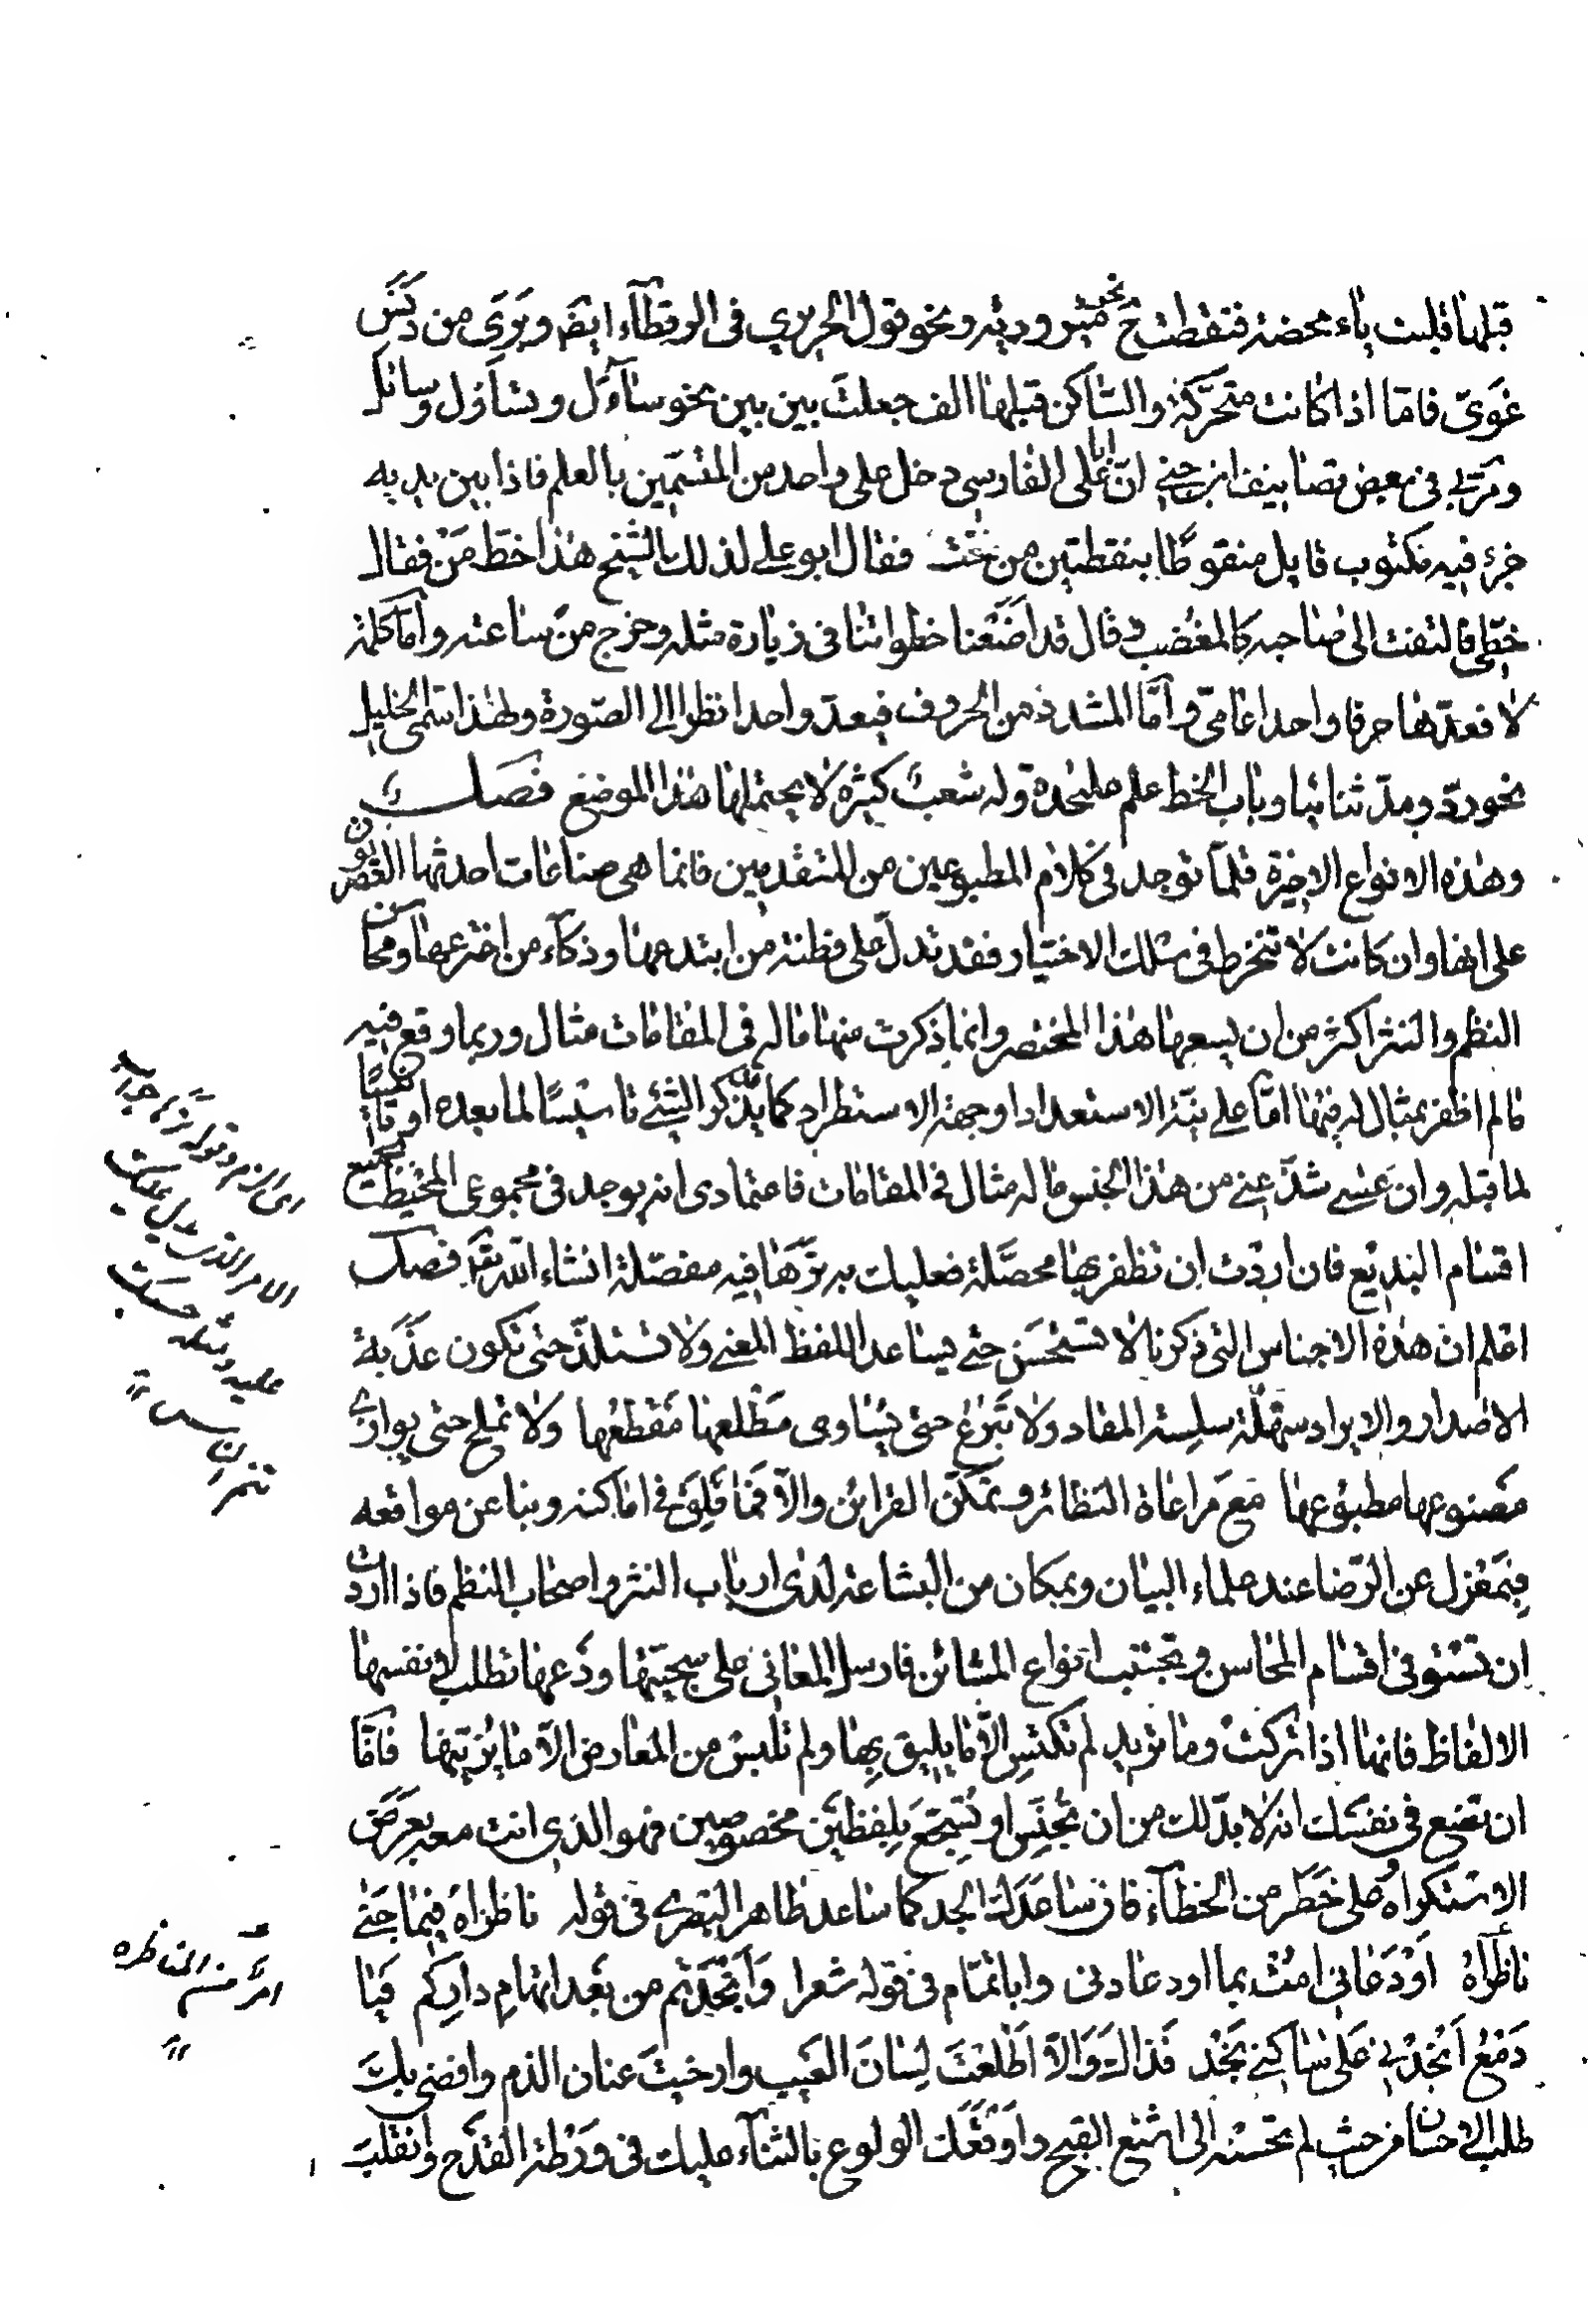 قبلها قلبت ياء محضة فتنقطت ح نحو مئير وديه ونحو قول الحريري في الرقطاء ايضَ ويَرَى من دَنَسٍ
غَوىّ فامّا اذا كانت متحرّكة والسّاكن قبلها الف جعلتَ بين بين نحو ساءَل وتساؤل وسائل
ومرّ بي في بعض تصانيف ابن جني انّ ابا على الفارسي دخل على واحد من المتسمّين بالعلم فاذا بين يديه
جزؤ فيه مكتوب قايل منقوطًا بنقطتين من تحت فقال ابو على لذلك الشيخ هذا خط مَنْ فقال
خطّى فالتفت الى صاحبه كالمغضب وقال قد اضَعْنا خطواتنا في زيارة مثله وخرج من ساعته وامّا كلمة
لا فعدّها حرفا واحدا عامىّ وامّا المشدد من الحروف فيعدّ واحدا نظرا الى الصّورة ولهذا سمّى الخليل
نحو ردّ ومدّ ثنائيا وباب الخط علم على حدة وله شعبٌ كثيرة لا يحتملها هذا الموضع فصل
وهذه الانواع الاخيرة قلمّا توجد في كلام المطبوعين من المتقدمين فانما هى صناعات احدثها العصريون
على انها وان كانت لا تنخرط في سلك الاختيار فقد تدلّ على فطنة من ابتدعها وذكاء من اخترعها ومحاسن
النظم والنثر اكثر من ان يسعها هذا المختصر وانما ذكرت منها ماله في المقامات مثال وربما وقع فيه
مالم اظفر بمثال له فيها امّا على نيّة الاستعداد او جهة الاستطراد كما يذكر الشئ تاسيسًا لما بعده او تاكيسًا
لما قبله وان عَسى شذّ عنى من هذا الجنس ماله مثال في المقامات فاعتمادى انه يوجد في مجموعى المحيط بجميع
اقسام البديع فان اردْت ان تظفر بها محصّلة فعليك به ترَها فيه مفصّلة انشاء الله تعَ فصل
اعلم ان هذه الاجناس التى ذكرنا لا تستحسَن حتى يساعد اللفظ المعنى ولا تستلذّ حتى تكون عذبة
الاصدار والايراد سهْلة سلِسة المقاد ولا تَبْرَعُ حتى يساوى مَطْلعها مَقْطعُها ولا تملح حتى يوازى
مصنوعها مطبوعها مَعَ مراعاة النظائر وتمكّن القرائن والاّ فما قَلِقَ في اماكنه ونبا عن مواقعه
فبِمَعْزل عن الرّضا عند علماء البيان وبمكان من البشاعة لدى ارباب النثر واصحاب النظم فاذا اردت
ان تستوفى اقسام المحاسن وتجتنب انواع المشائن فارسل المعانى على سجيتها ودَعها تطلب لانفسها
الالفاظ فانها اذا تركتْ وما تريد لم تكتسِ الاّ ما يليق بها ولم تلبسْ من المعارض الاّ ما يُزيّنها فامّا
ان تضع في نفسك انه لا بدّ لك من ان تُجنّس او تُسَجّعَ بلفظيْن مخصوصين فهو الذى انت معه بِعَرَضِ
الاستكراهِ وعلى خَطَرٍ من الخطاء فان ساعَدَك الجد كما ساعد ظاهر البصرى في قوله ناظراهُ فيما جَنى
ناظراهُ اوْدَعانى امُتْ بما اودعانى وابا تمّام في قوله شعرا وَانْجَدْتم من بَعْد اتهامِ دارِكم فيَا
دَمْعُ اَنْجِدْنى عَلى ساكنى نجْد فَذاك وَالاّ اَطْلعْتَ لِسَانَ العَيب وارخيتَ عنان الذم وافضى بكَ
طلب الاحسان من حيث لم تحسنه الى اشنع القبح واوقعَك الولوع بالثناء عليك في ورْطة القدْح وانقلبَ